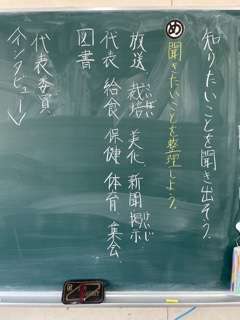 知りたいことを聞き出そう。
め 聞きたいことを整理しよう。
放送 栽培 美化 新聞 掲示
さいばい けいじ
代表 給食 保健 体育 集会
図書
代表委員
(インタビュー)